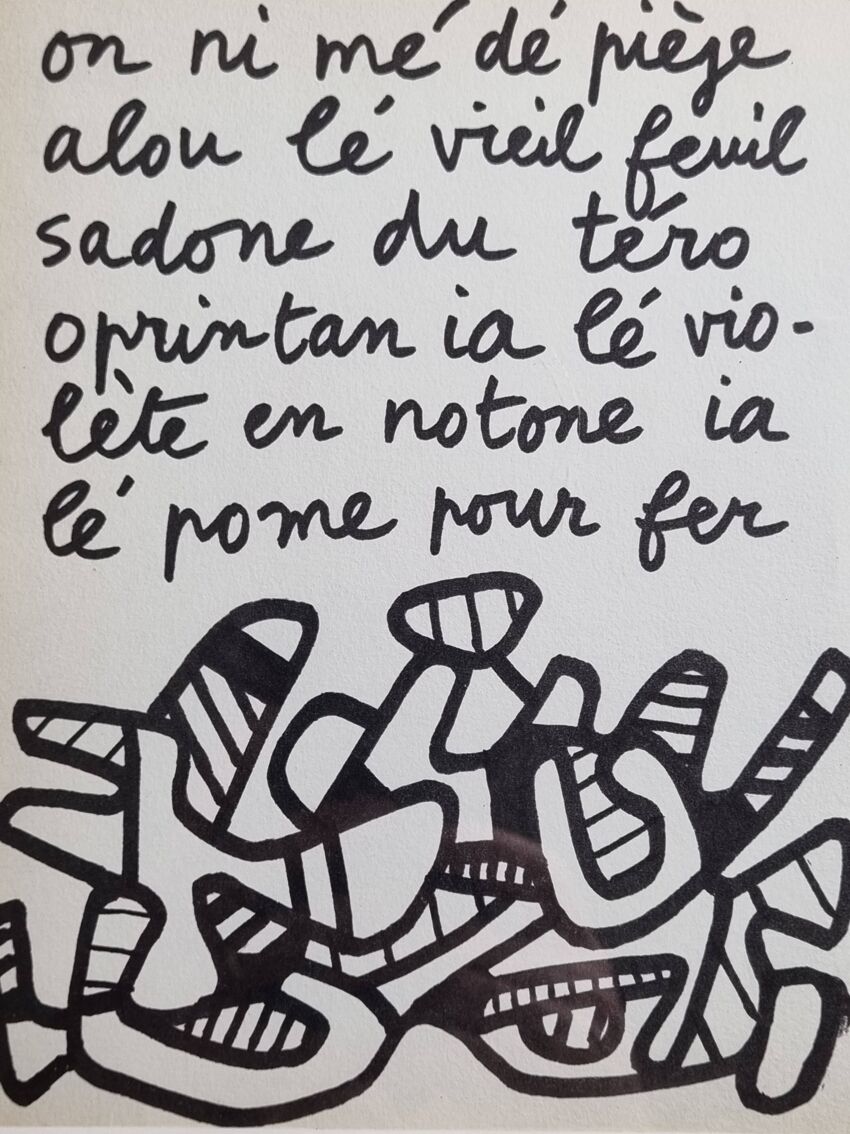 on ni mé dé piège
alou lé vieil feuil
sadone du téro
oprintan ia lé vio-
lète en notone ia
lé pome pour fer